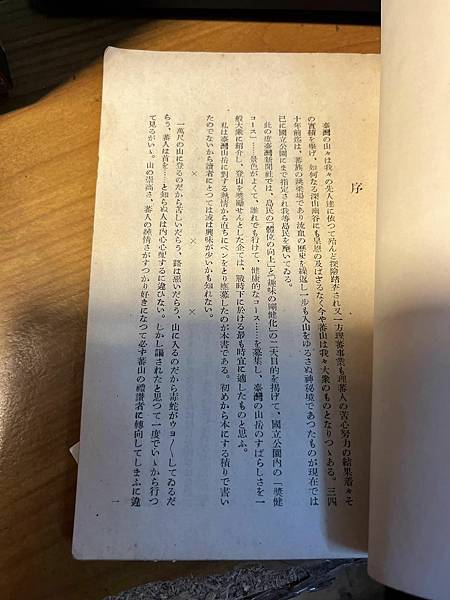 序
臺灣の山々は我々の先人達に依つて殆んど探險踏査され又一方理蕃事業も理蕃人の苦心努力の結果着々そ
の實績を擧げ、如何なる深山幽谷にも皇恩の及ばざるなく今や蕃山は我々大衆のものとなりつゝある。三四
十年前迄は、蕃族の跳梁場であり流血の歷史を繰返し一步も入山をゆるさぬ神秘境であつたものが現在では
已に國立公園にまで指定され我等島民を麾いてゐる。
此の度臺灣新聞社では、島民の「體位の向上」と「趣味の剛健化」の二大目的を揭げて、國立公園內の「奬健
コース」……景色がよくて、誰れでも行けて、健康的なコース……を募集し、臺灣の山岳のすばらしさを一
般大衆に紹介し、登山を奬勵せんとした企ては、戰時下に於ける最も時宜に適したものと思ふ。
私は臺灣山岳に對する熱情から直ちにペンをとり應募したのが本書である。初めから本にする積りで書い
たのでないから讀者にとつては或は興味が少いかも知れない。
×　×　×
一萬尺の山に登るのだから苦しいだらう、路は惡いだらう、山に入るのだから毒蛇がウヨ〳〵してゐるだ
らう、蕃人は首を……と知らぬ人は內心心配するに違ひない。しかし騙されたと思つて一度でいゝから行つ
て見るがいゝ。山の崇高さ、蕃人の純情さがすつかり好きになつて必ず蕃山の禮讃者に轉向してしまふに違
一